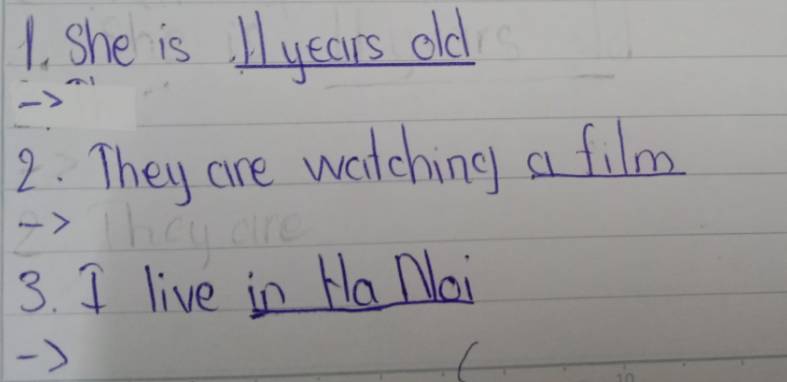 1. She is 11 years old
->
2. They are watching a film
-> They are
3. I live in Ha Noi
->